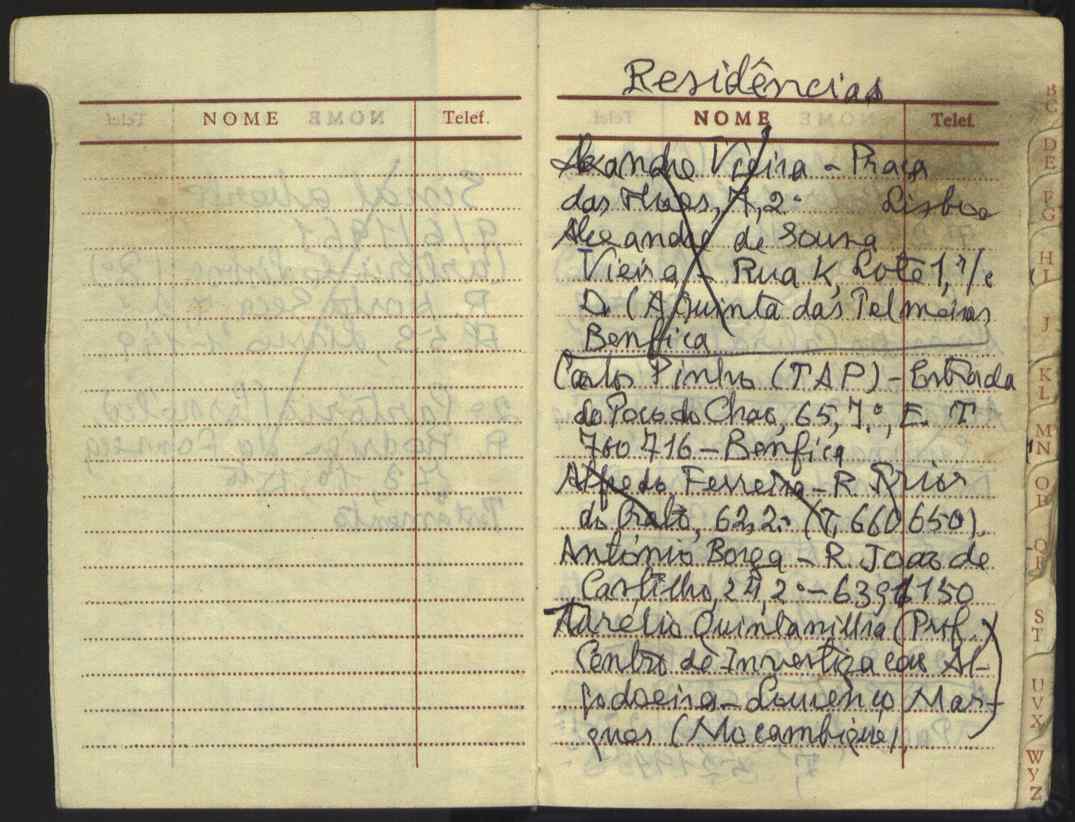 NOME Telef.
Residências
NOME Telef.
Alexandre Vieira - Praça
das Flores, 7, 2º Lisboa
Alexandre de Sousa
Vieira - Rua K, Lote 1, r/c
D. (A Quinta das Palmeiras
Benfica
Carlos Pinho (TAP) - Estrada
do Poço do Chao, 65, 7.º, E. T
760716 - Benfica
Alfredo Ferreira - R. Prior
do Crato, 62, 2º (T, 660650).
António Borga - R. Joao de
Castilho, 24, 2º - 639150
Aurélio Quintanilha (Prof.)
Centro de Investigacao Al-
godoeira - Lourenço Mar-
ques (Mocambique)
B
C
D
E
F
G
H
I
J
K
L
M
N
O
P
Q
R
S
T
U
V
X
W
Y
Z